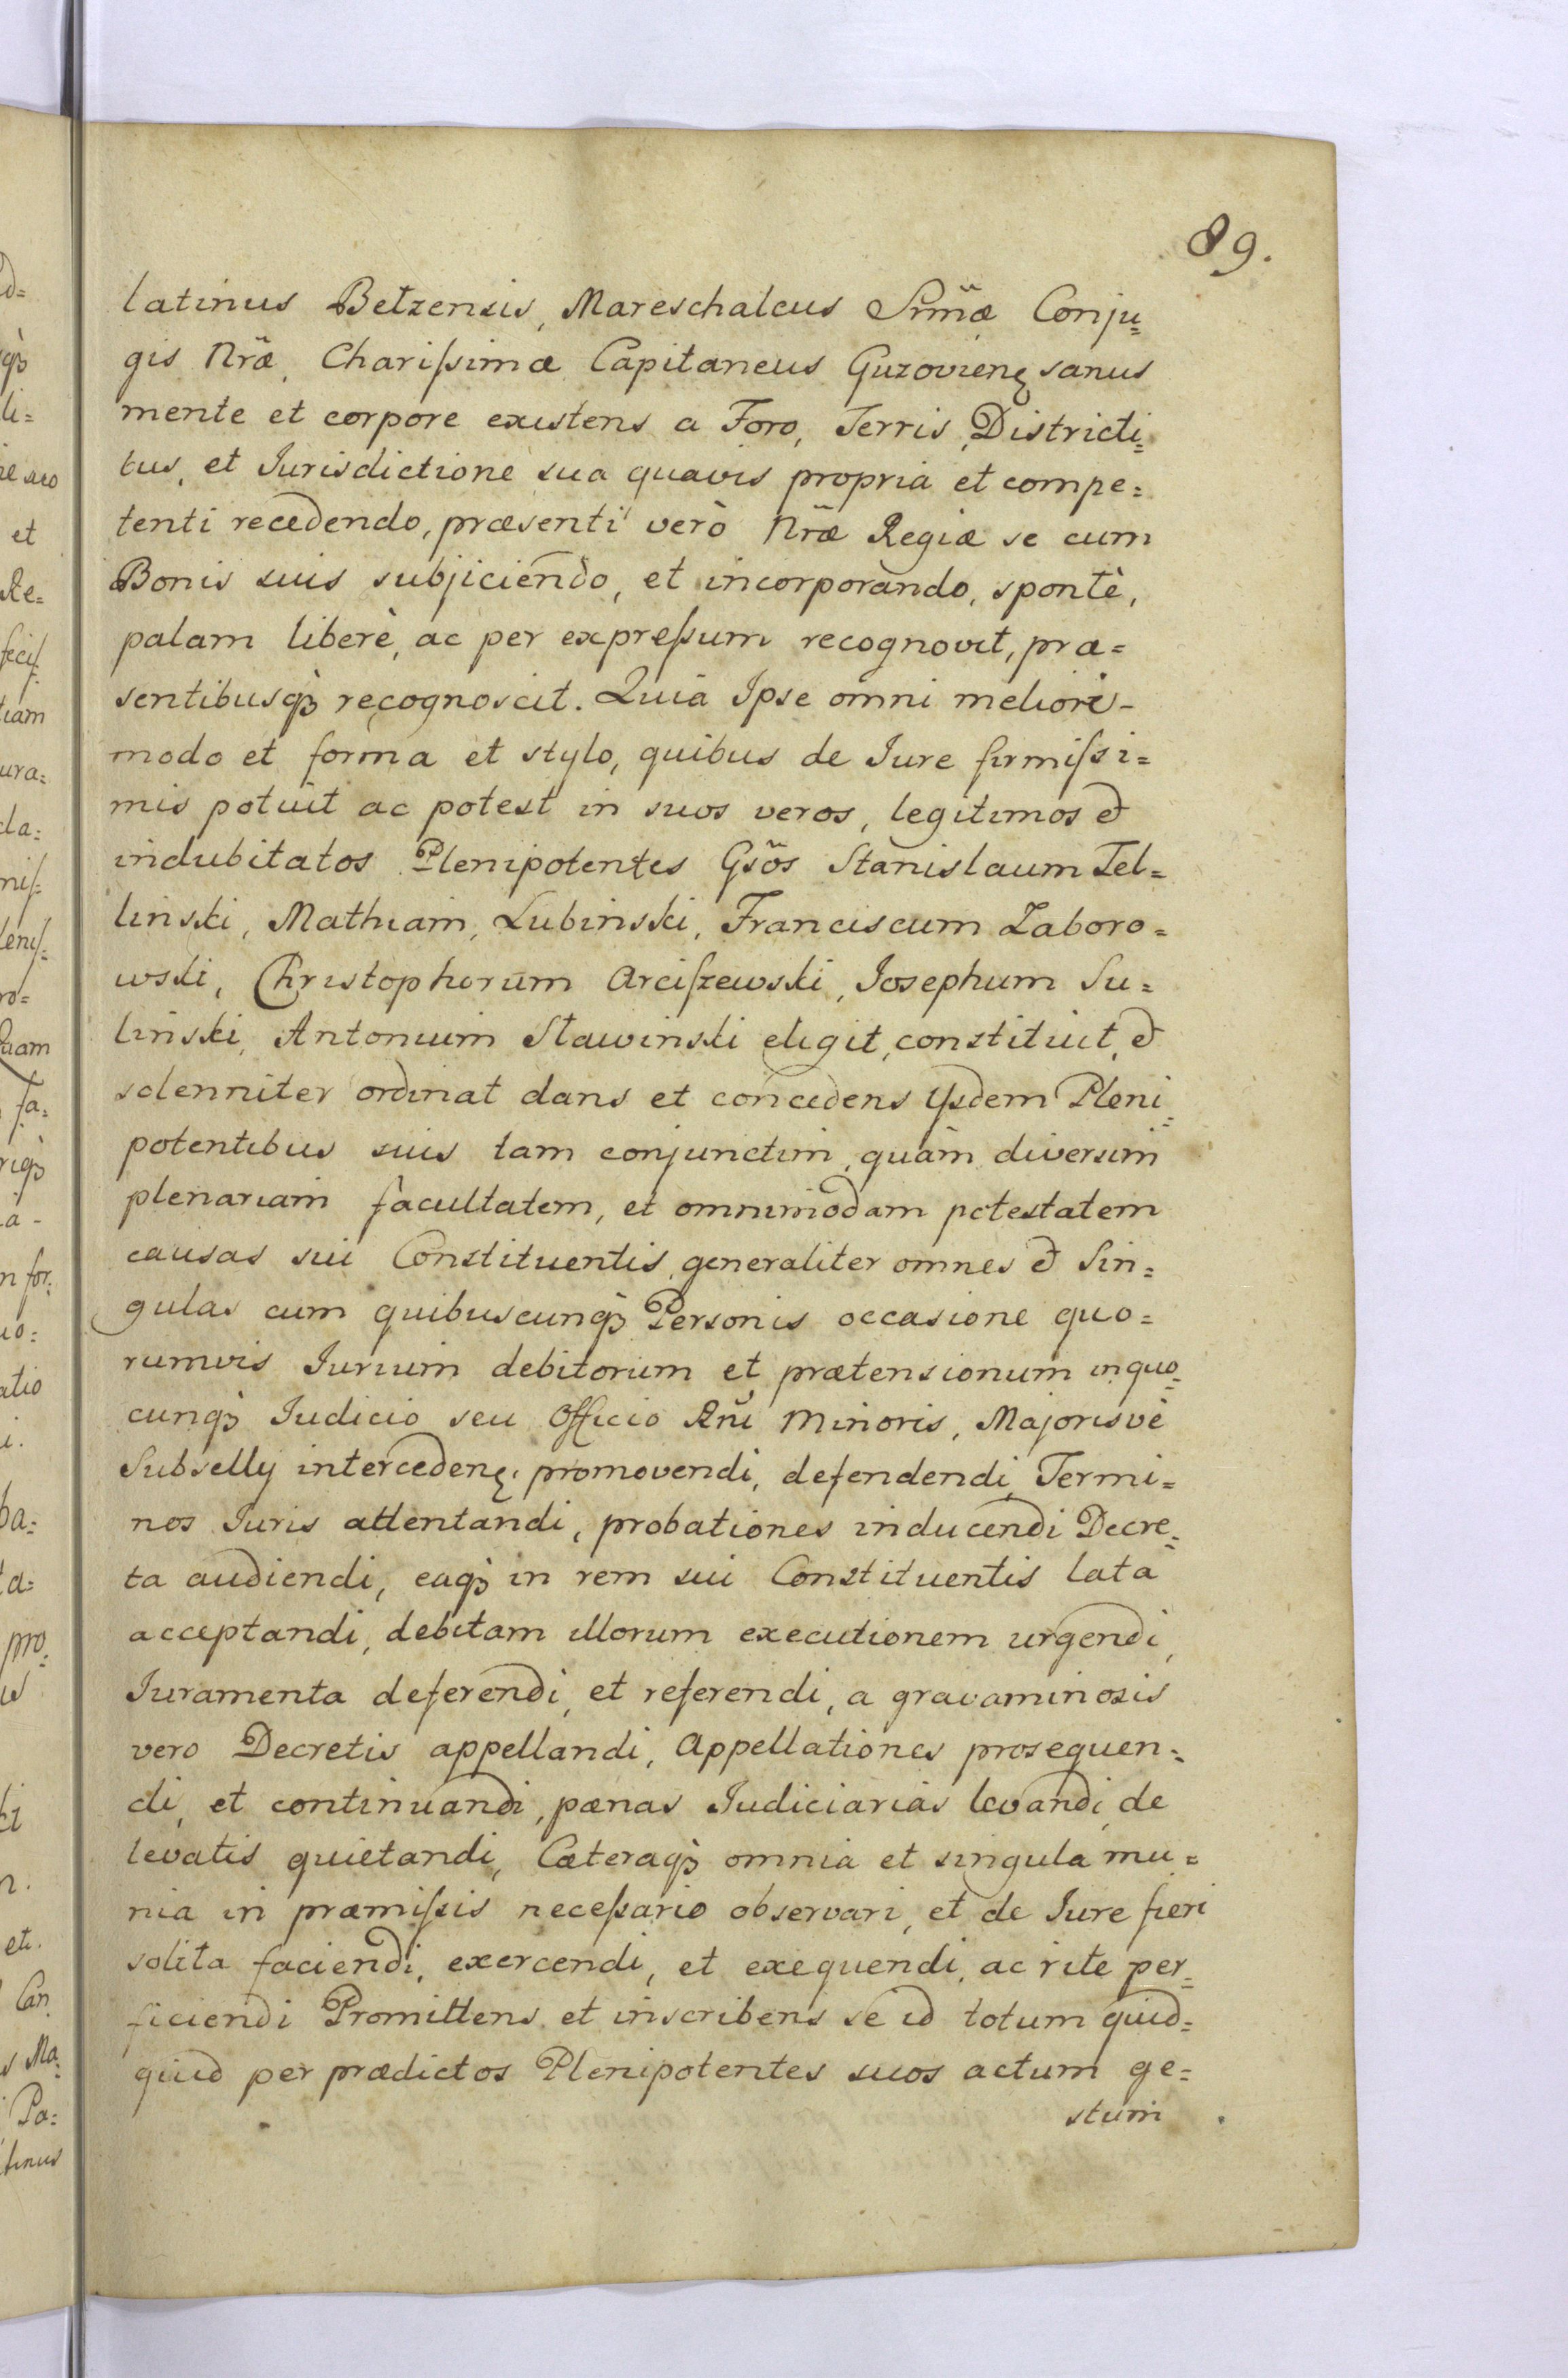 89.
latinus Betzensis, Mareschalcus Srm̃æ Conju=
gis Nr̃æ, Charißimæ Capitaneus Guzovienę sanus
mente et corpore existens a Foro, Terris, Districti=
bus, et Iurisdictione sua quavis propria et compe=
tenti recedendo, præsenti verò Nr̃æ Regiæ se cum
Bonis suis subjiciendo, et incorporando, spontè,
palam liberè, ac per expreßum recognovit, præ=
sentibusqꝫ recognoscit. Quia Ipse omni meliori-
modo et forma et stylo, quibus de Iure firmißi=
mis potuit ac potest in suos veros, legitimos &
indubitatos Plenipotentes Gsõs Stanislaum Tel=
linski, Mathiam, Lubinski, Franciscum Zaboro=
wski, Christophorum Arcißewski, Josephum Su=
linski, Antonium Stawinski eligit, constituit, &
solenniter ordinat dans et concedens ijsdem Pleni=
potentibus suis tam conjunctim, quàm diversim
plenariam facultatem, et omnimodam potestatem
causas sui Constituentis, generaliter omnes & Sin=
gulas cum quibuscunqꝫ Personis occasione quo=
rumvis Iurium debitorum et prætensionum in quo=
cunqꝫ Iudicio seu Officio Rñi Minoris, Majorisvè
Subselly intercedenę, promovendi, defendendi, Termi=
nos Iuris attentandi, probationes inducendi Decre=
ta audiendi, eaqꝫ in rem sui Constituentis lata
acceptandi, debitam illorum executionem urgendi,
Iuramenta deferendi, et referendi, a gravaminosis
vero Decretis appellandi, Appellationes prosequen=
di, et continuandi, pænas Iudiciarias levandi, de
levatis quietandi, Cæteraqꝫ omnia et singula mu=
nia in præmißis neceßario observari, et de Iure fieri
solita faciendi, exercendi, et exequendi, ac rite per=
ficiendi Promittens et inscribens se id totum quid=
quid per prædictos Plenipotentes suos actum ge=
stum